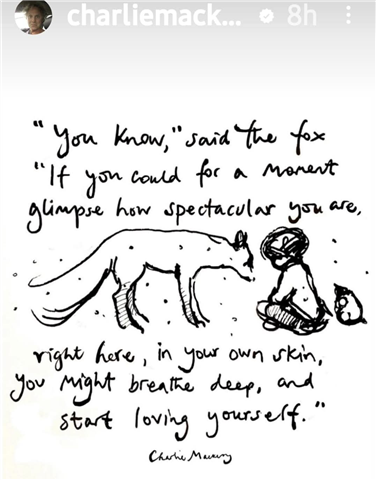 charliemack... 8h
"You know," said the fox
"If you could for a moment
glimpse how spectacular you are,
right here, in your own skin,
you might breathe deep, and
start loving yourself."
Charlie Mackesy